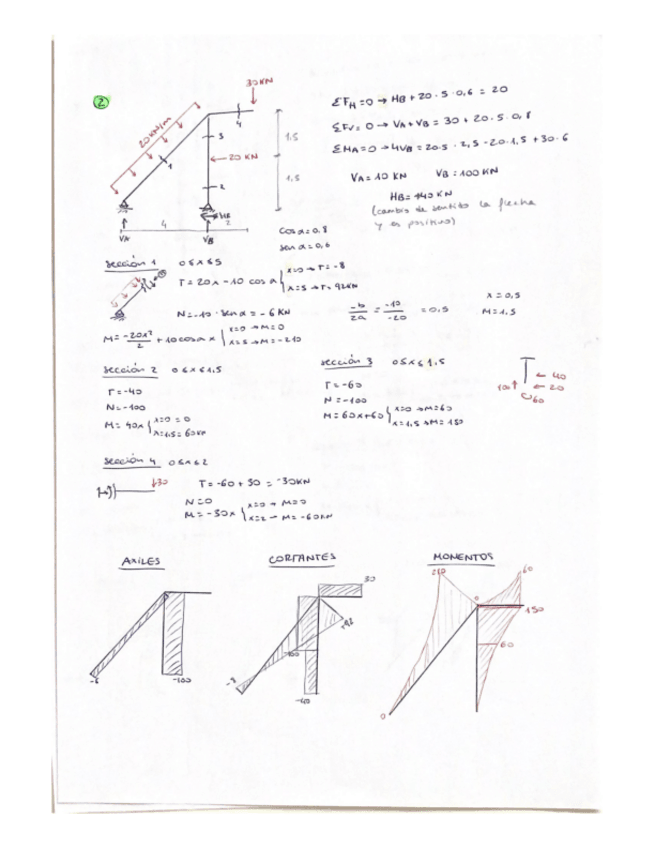 2
30 KN
20 KN/m
1
3
4
← 20 KN
2
1.5
1.5
HB
VA
4
VB
2
ΣFH=0 → HB + 20·5·0,6 = 20
ΣFV=0 → VA+VB = 30 + 20·5·0,8
ΣMA=0 → 4VB = 20·5·2,5 - 20·1,5 + 30·6
VA=10 KN VB=100 KN
(cambio de sentido la flecha
y es positivo)
cos α=0,8
sen α=0,6
sección 1 0≤x≤5
T= 20x - 10 cos α { x=0 → T=-8
x=5 → T=92KN
N=-10·sen α = -6 KN
-b/2a = -10/-20 = 0,5
x=0,5
M=1.5
M= -20x²/2 + 10cosα x { x=0 → M=0
x=5 → M=-210
sección 2 0≤x≤1,5
T=-40
N=-100
M= 40x { x=0 = 0
sección 3 0≤x≤1,5
T=-60
N=-100
M= 60x+60 { x=0 → M=60
x=1,5 → M=150
← 40
← 20
60
sección 4 0≤x≤2
↓30
T= -60 + 30 = -30KN
N=0
M= -30x { x=0 → M=0
x=2 → M= -60KN
AXILES
CORTANTES
MONTENTOS
-6
-100
30
+92
-8
210
0
60
150
60
0